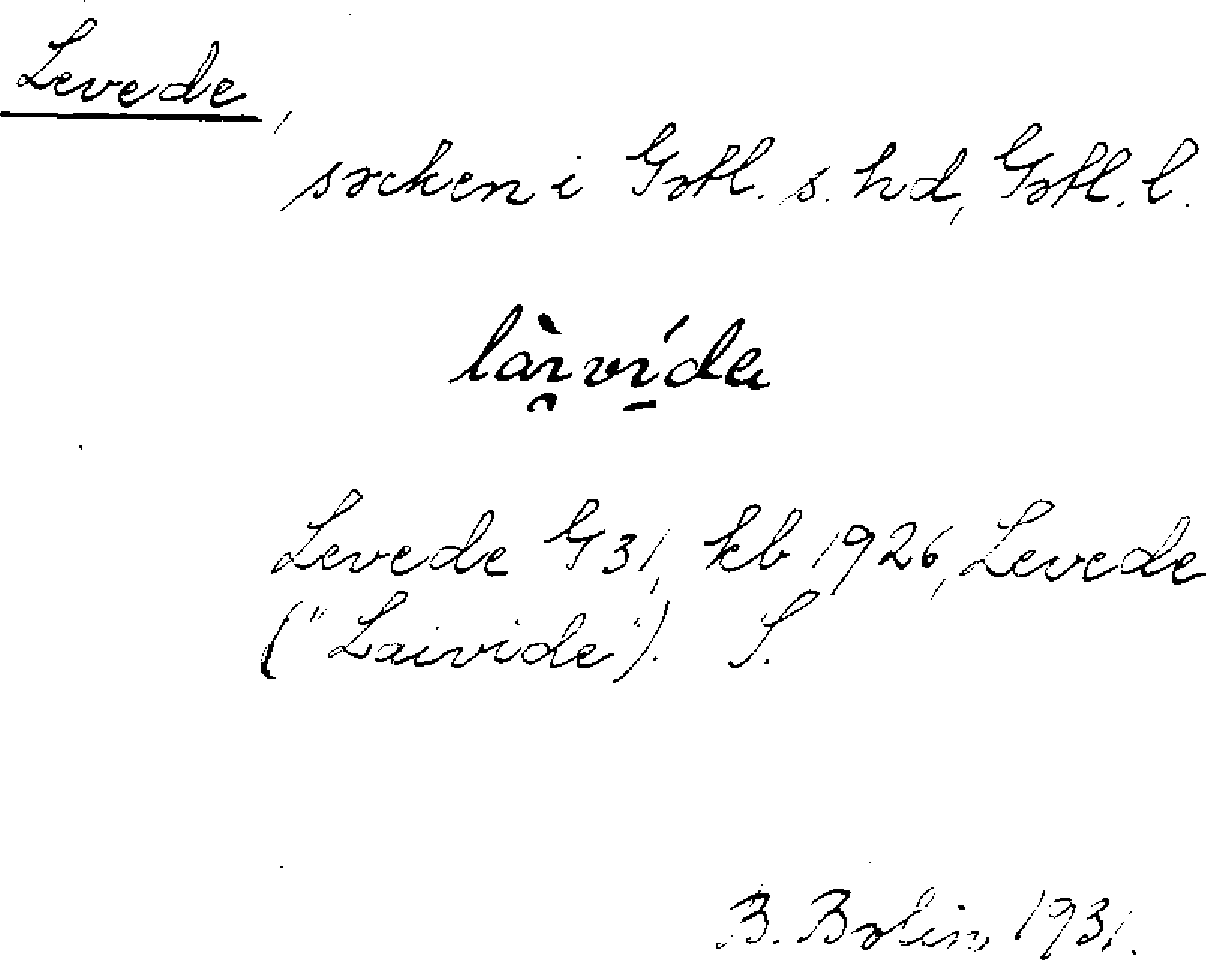 Levede,
socken i Gotl. s. hd, Gotl. l.
làivídɐ
Levede G 31, kb 1926, Levede
("Laivide"). S.
B. Bolin, 1931.